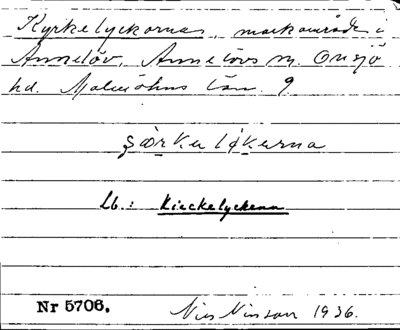 Kyrkelyckorna, markområde i
Annelöv, Annelövs sn. Onsjö
hd. Malmöhus län. 9
şørkelókerna
Lb.: Kirckelyckenn
Nr 5706. Nils Nilsson 1936.